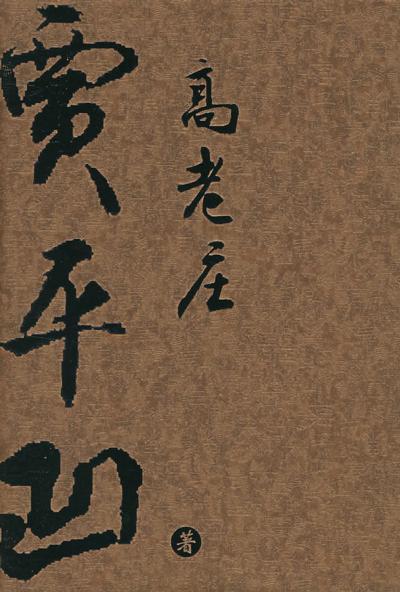 贾平凹
高老庄
著